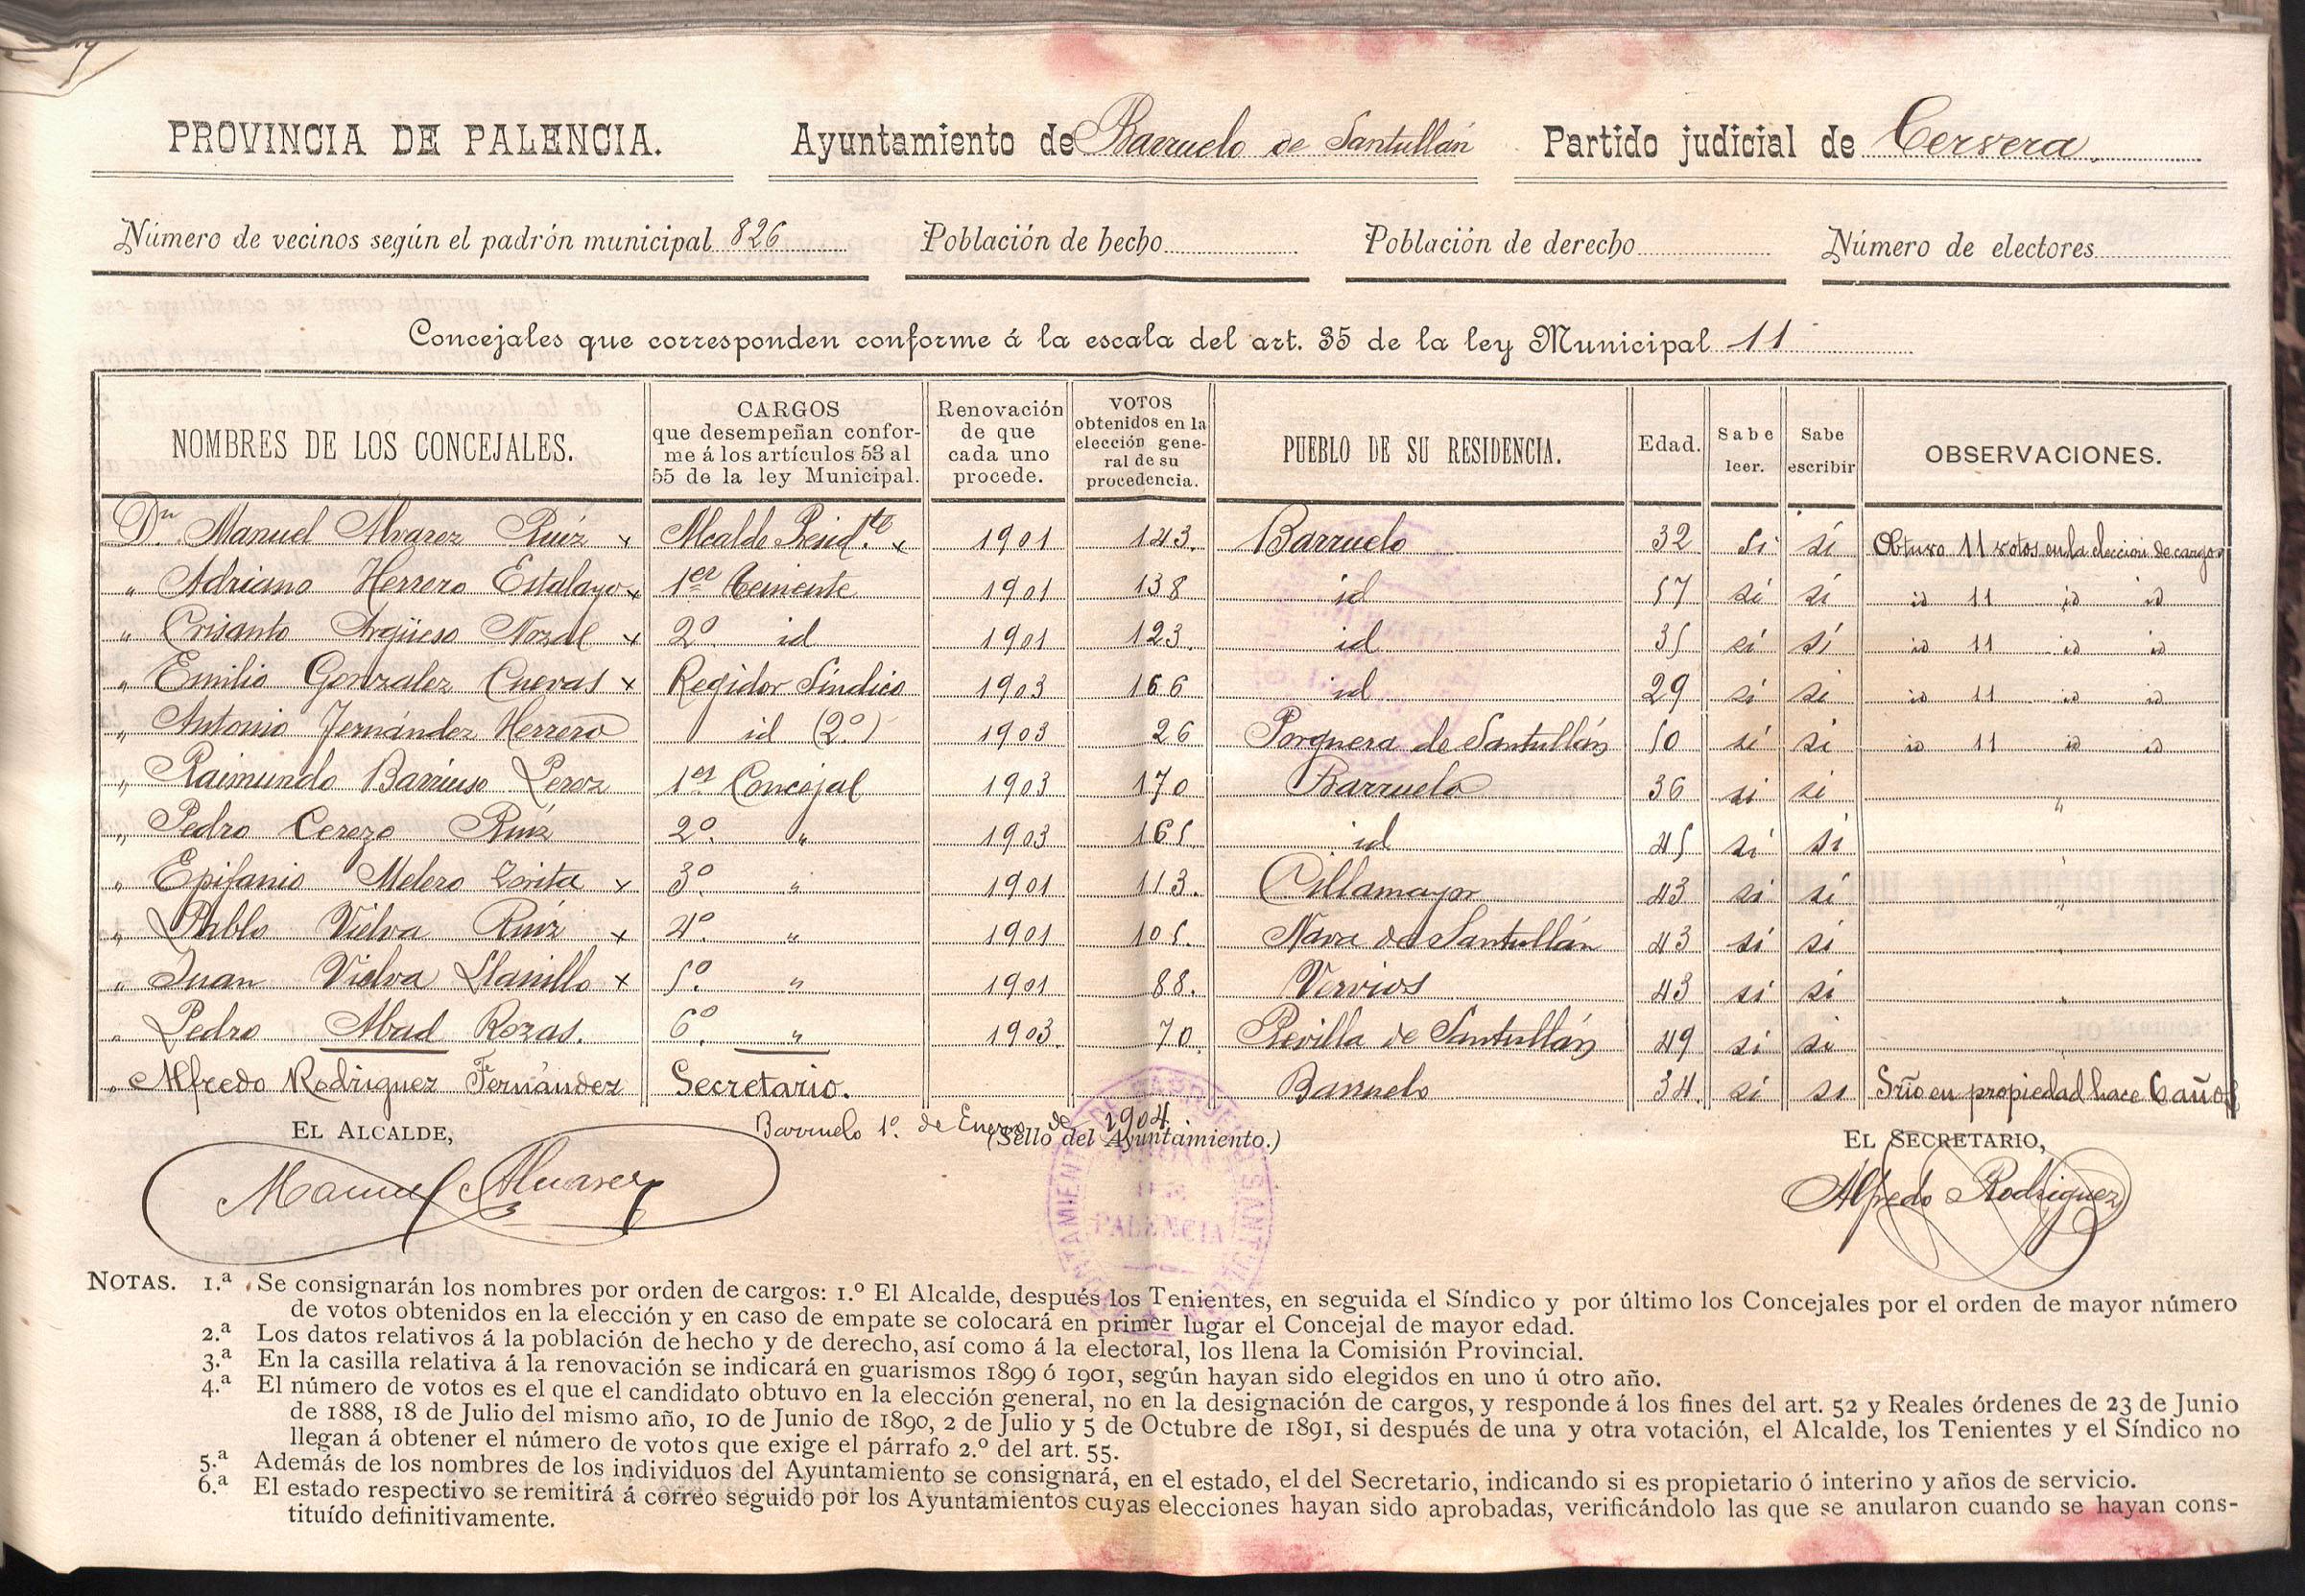 PROVINCIA DE PALENCIA. Ayuntamiento de Barruelo de Santullán Partido judicial de Cervera.
Número de vecinos según el padrón municipal 826 Población de hecho Población de derecho Número de electores
Concejales que corresponden conforme á la escala del art. 35 de la ley Municipal 11
NOMBRES DE LOS CONCEJALES. CARGOS que desempeñan confor- me á los artículos 53 al 55 de la ley Municipal. Renovación de que cada uno procede. VOTOS obtenidos en la elección gene- ral de su procedencia. PUEBLO DE SU RESIDENCIA. Edad. Sabe leer. Sabe escribir OBSERVACIONES.
Dn. Manuel Alvarez Ruíz x Alcalde Presidte. x 1901 143. Barruelo 32 Si si Obtuvo 11 votos en la elección de cargos
" Adriano Herrero Estalayo x 1er Teniente 1901 138 id 57 si si id 11 id id
" Crisanto Argüeso Nozal x 2º id 1901 123. id 35 si si id 11 id id
" Emilio Gonzalez Cuevas x Regidor Síndico 1903 166 id 29 si si id 11 id id
" Antonio Fernández Herrero id (2º) 1903 26 Porquera de Santullán 50 si si id 11 id id
" Raimundo Barriuso Perez 1er Concejal 1903 170 Barruelo 36 si si "
" Pedro Cerezo Ruíz 2º. " 1903 165 id 45 si si
" Epifanio Melero Zorita x 3º. " 1901 113. Cillamayor 43 si si "
" Pablo Vielva Ruíz x 4º. " 1901 105. Nava de Santullán 43 si si "
" Juan Vielva Llanillo x 5º. " 1901 88. Vervios 43 si si "
" Pedro Abad Rozas. 6º. " 1903. 70. Revilla de Santullán 49 si si
" Alfredo Rodriguez Fernández Secretario. Barruelo 34. si si Srio en propiedad hace 6 años
Barruelo 1º. de Enero de 1904.
EL ALCALDE, (Sello del Ayuntamiento.) EL SECRETARIO,
Manuel Alvarez Alfredo Rodriguez
PALENCIA
NOTAS. 1.ª Se consignarán los nombres por orden de cargos: 1.º El Alcalde, después los Tenientes, en seguida el Síndico y por último los Concejales por el orden de mayor número
de votos obtenidos en la elección y en caso de empate se colocará en primer lugar el Concejal de mayor edad.
2.ª Los datos relativos á la población de hecho y de derecho, así como á la electoral, los llena la Comisión Provincial.
3.ª En la casilla relativa á la renovación se indicará en guarismos 1899 ó 1901, según hayan sido elegidos en uno ú otro año.
4.ª El número de votos es el que el candidato obtuvo en la elección general, no en la designación de cargos, y responde á los fines del art. 52 y Reales órdenes de 23 de Junio
de 1888, 18 de Julio del mismo año, 10 de Junio de 1890, 2 de Julio y 5 de Octubre de 1891, si después de una y otra votación, el Alcalde, los Tenientes y el Síndico no
llegan á obtener el número de votos que exige el párrafo 2.º del art. 55.
5.ª Además de los nombres de los individuos del Ayuntamiento se consignará, en el estado, el del Secretario, indicando si es propietario ó interino y años de servicio.
6.ª El estado respectivo se remitirá á correo seguido por los Ayuntamientos cuyas elecciones hayan sido aprobadas, verificándolo las que se anularon cuando se hayan cons-
tituído definitivamente.